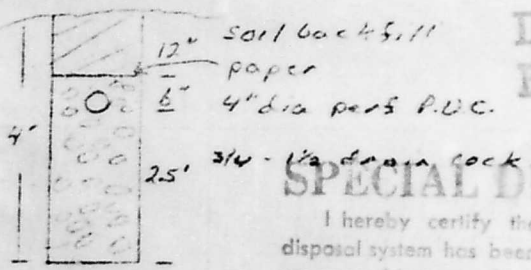 12" soil backfill
paper
6" 4" dia perf P.V.C.
4'
2.5' 3/4 - 1½ drain rock
SPECIAL D
I hereby certify the
disposal system has been